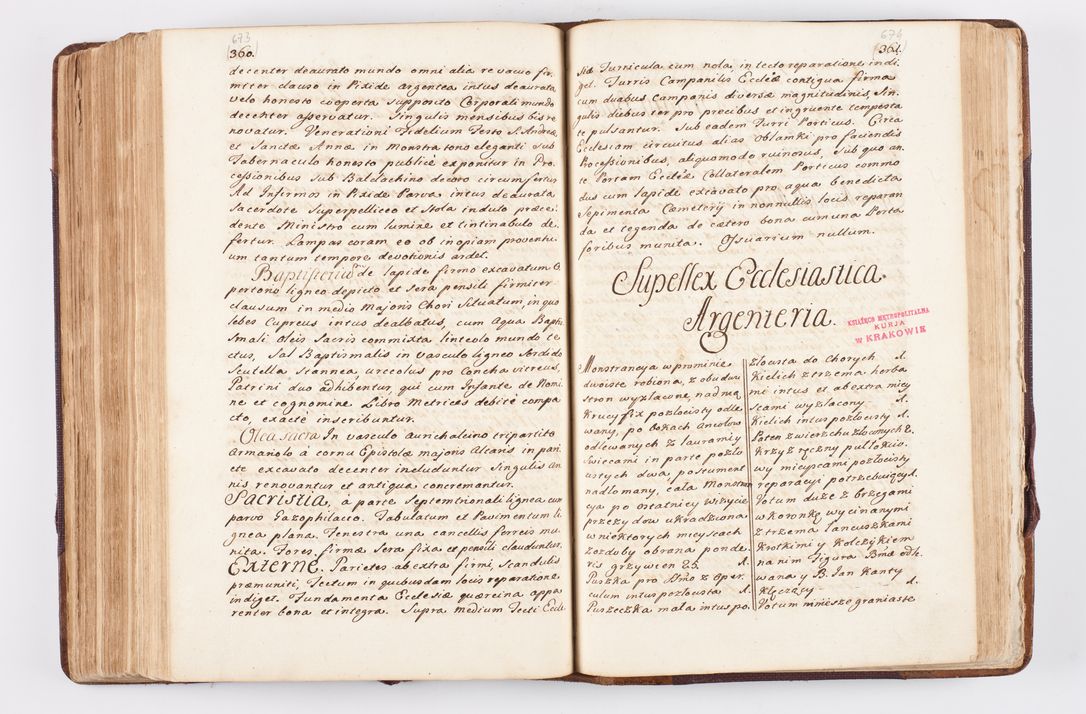 673
360.
decenter deaurato mundo omni alia re vacuo fir,
miter clauso in Pixide argentea intus deaurata
velo honesto cooperta supposito Corporali mundo
decenter asservatur. Singulis mensibus bis re
novatur. Venerationi Fidelium Festo S. Andreæ
et Sanctæ Annæ in Monstratono eleganti sub
Tabernaculo honesto publice exponitur in Pro,
cessionibus sub Baldachino decoro circumfertur
Ad Infirmos in Pixide Parva intus deaurata
Sacerdote superpelliceo et Stola induto præce,
dente Ministro cum lumine et tintinabulo de,
fertur. Lampas coram eo ob inopiam proventu,
um tantum tempore devotionis ardet.
Baptisteriũ de lapide firmo excavatum O,
pertorio ligneo depicto et sera pensili firmiter
clausum in medio Majoris Chori situatum, in quo
lebes Cupreus intus dealbatus, cum Aqua Bapti
smali Oleis Sacris commixta linteolo mundo te
ctus, Sal Baptismalis in vasculo ligneo sordido
Scutella stannea, urceolus pro Concha vitreus,
Patrini duo adhibentur qui cum Infante de Nomi,
ne et cognomine Libro Metrices debitè compa
cto, exactè inscribuntur.
Olea Sacra In vasculo aurichalcino tripartito
Armariolo à cornu Epistolæ majoris Altaris in pari
ete excavato decenter includuntur Singulis an
nis renovantur et antiqua concremantur.
Sacristia, à parte Septemtrionali lignea cum
parvo Gazophilacio. Tabulatum et Pavimentum li
gnea plana. Fenestra una cancellis ferreis mu
nita. Fores firmæ sera fixa et pensili clauduntur.
Externe. Parietes ab extra firmi, scandulis
præmuniti, Tectum in quibusdam locis reparatione
indiget. Fundamenta Ecclesiæ quercina appa
renter bona et integra. Supra medium Tecti Eccle
674
361.
siæ Turricula cum nola, in tecto reparatione indi,
get. Turris Campanilis Eccl̃æ contigua firma
cum duabus Campanis diversæ magnitudinis, Sin,
gulis diebus ter pro precibus et ingruente tempesta
te pulsantur. Sub eadem Turri Porticus. Circa
Ecclesiam circuitus alias Oblamki pro faciendis
Processionibus, aliquomodo ruinosus, sub quo an,
te Portam Eccl̃æ Collateralem Porticus commo
dus cum lapide excavato pro aqua benedicta
Sepimenta Cæmeterij in nonnullis locis reparan
da et tegenda de cætero bona cum una Porta
foribus munita. Ossuarium nullum.
Supellex Ecclesiastica.
Argenteria.
KSIĄŻĘCO METROPOLITALNA
KURJA
W KRAKOWIE
Monstrancya w prominie
dwoiste robiona, z obu dwu
stron wyzlacone, nad nią
Krucyfix pozlocisty odle
wany, po bokach Aniołow
odlewanych z lauramiy
Swiecami in parte pozło
cistych dwa, postument
nadlomany, cała Monstran
cya po ostatniey wizycie
przez ydow ukradziona
w niektorych mieyscach
z ozdoby obrana ponde,
ris grzywien 25. 1.
Puszka pro Stm̃o z oper,
culum intus pozłocista 1.
Puszeczka mała intus po,
złocista do Chorych 1.
Kielich z trzema herba
mi intus et ab extra miey
scami wyzłacony 1.
Kielich intus pozłocisty 1.
Paten z wierzchu złoconych 2.
Krzyz ręczny pułłokcio,
wy mieyscami pozłocisty
reparacyi potrzebuiący 1.
Votum duże z brzegami
w koronkę wycinanymi
z trzema lancuszkami
krotkimi y kolczykiem
na nim Figura Bm̃æ odle
wana y B. Jan Kanty
klęczący 1.
Votum mnieysze graniaste